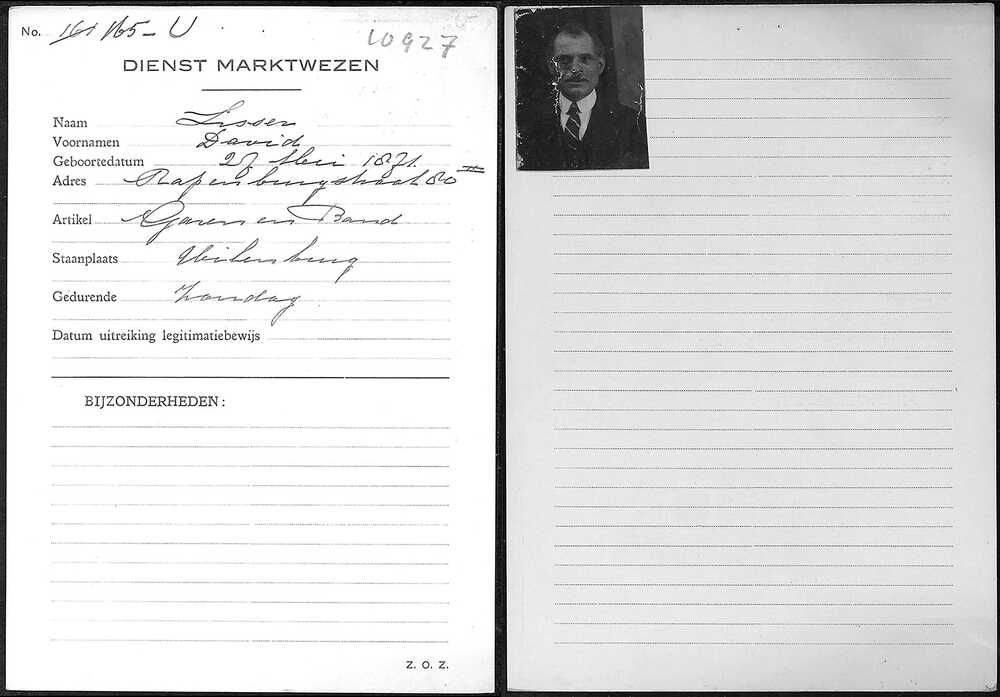 No. 161 165-U
10927
DIENST MARKTWEZEN
Naam Lisser
Voornamen David
Geboortedatum 27 Mei 1871.
Adres Rapenburgstraat 80 II
Artikel Garen en Band
Staanplaats Uilenburg
Gedurende Zondag
Datum uitreiking legitimatiebewijs
BIJZONDERHEDEN:
Z. O. Z.